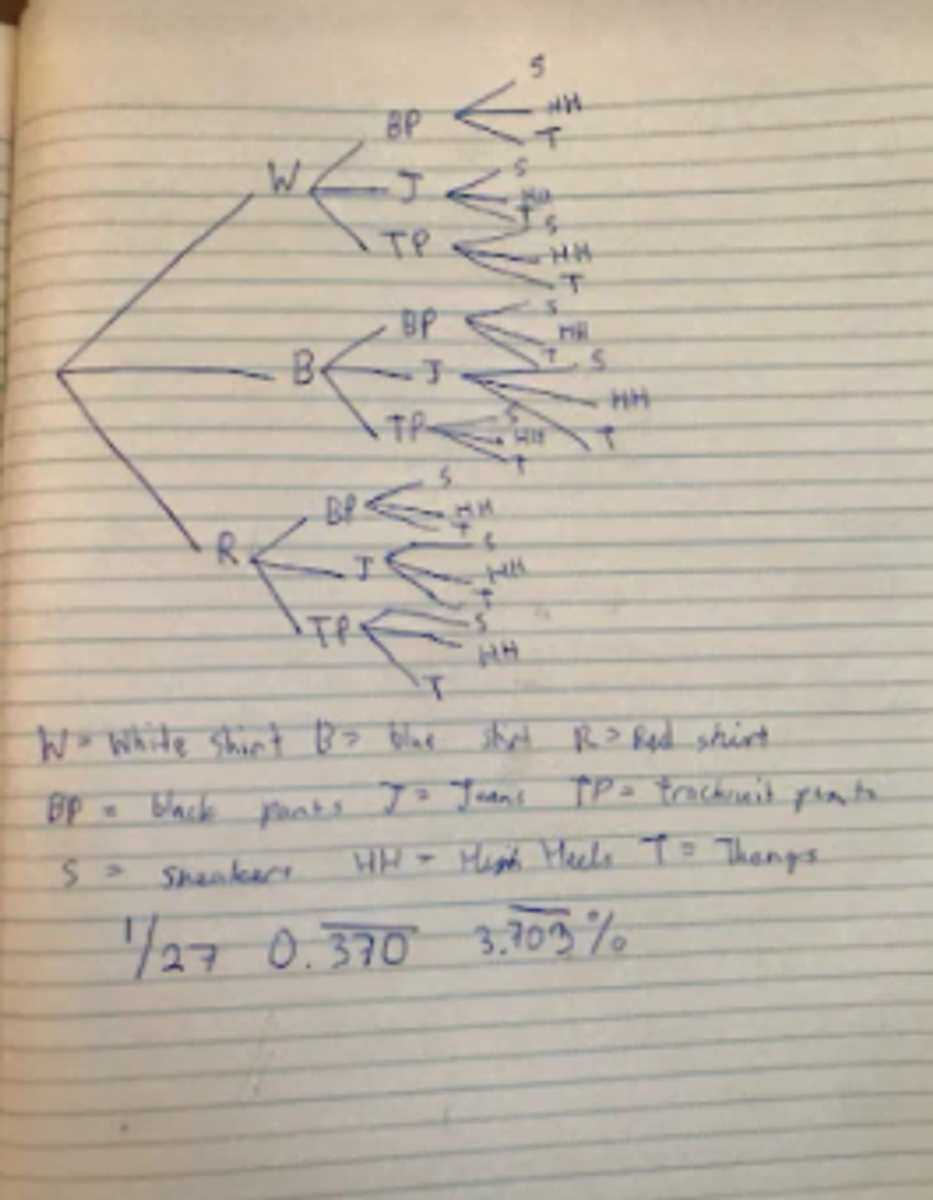 S
BP HH
T
S
W J HH
T
S
TP HH
T
S
BP HH
T
S
B J HH
T
S
TP HH
T
S
BP HH
T
S
R J HH
T
S
TP HH
T
W = White Shirt B = blue shirt R = Red shirt
BP = black pants J = Jeans TP = tracksuit pants
S = sneakers HH = High Heels T = Thongs
1/27 0.370 3.703%